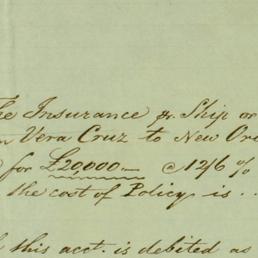 The Insurance pr. Ship or
Vera Cruz to New Or
for £20,000 —
the cost of Policy is ..
this acct. is debited as